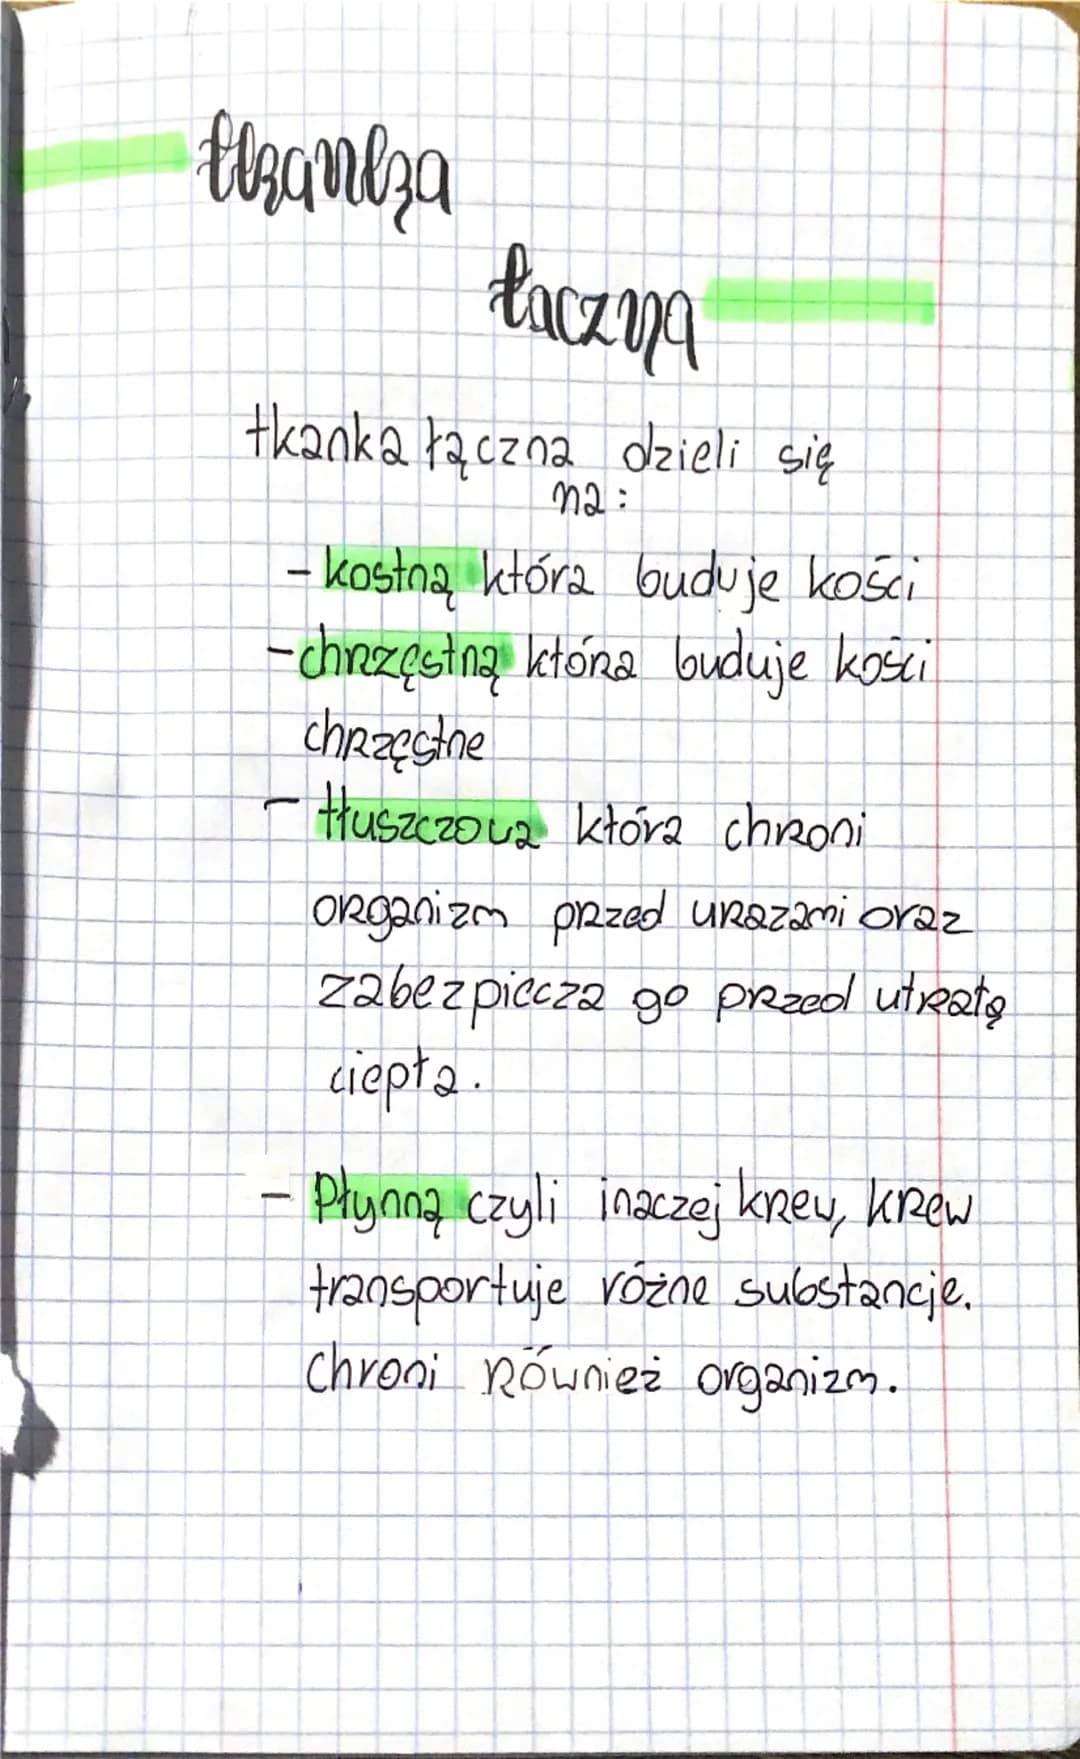 tkanka
łączna
tkanka łączna dzieli się
na:
- kostną która buduje kości
- chrzęstną która buduje kości
chrzęstne
- tłuszczowa która chroni
organizm przed urazami oraz
zabezpiecza go przed utratą
ciepła.
- Płynną czyli inaczej krew, krew
transportuje różne substancje.
Chroni również organizm.